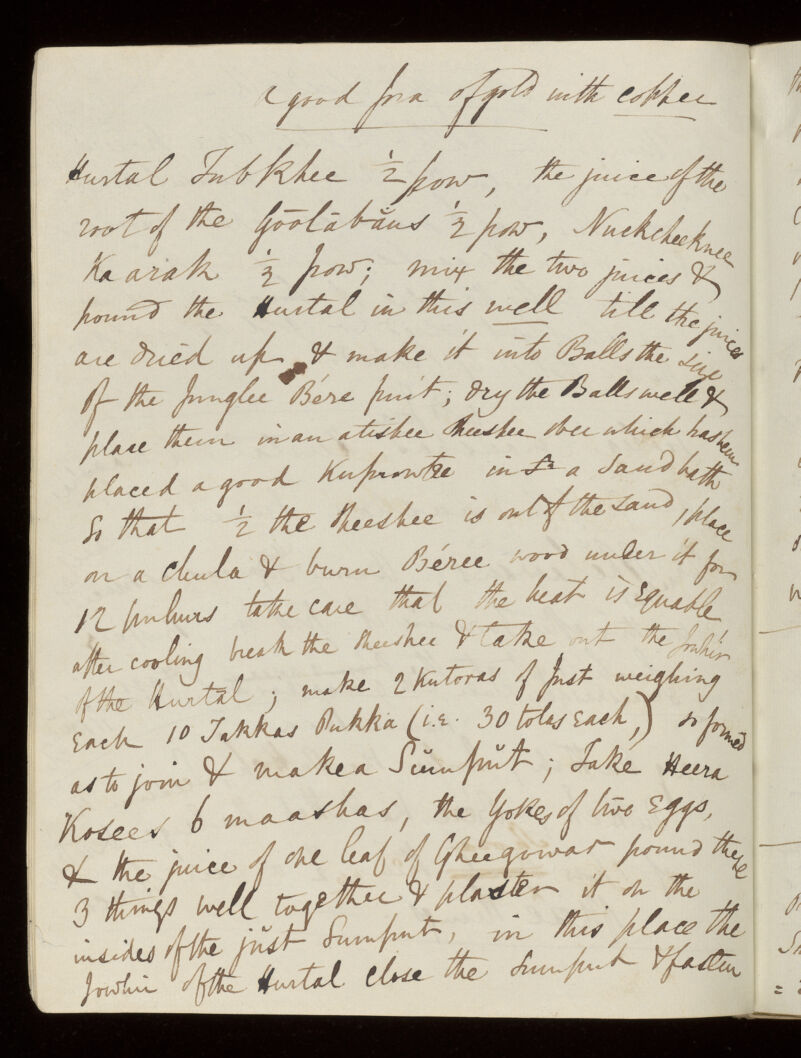 a good Jora of gold with copper
Hurtal Tubkhee ½ pow, the juice of the
root of the Goolabāus ½ pow, Nuckcheeknee
Ka arak ½ pow; mix the two juices &
pound the Hurtal in this well till the juices
are dried up & make it into Balls the size
of the Junglee Bére fruit; dry the Balls well &
place them in an atishee sheeshee over which has been
placed a good Kuprowtee in a Sand bath
So that ½ the sheeshee is out of the sand, place
on a chula & burn Béree wood under it for
12 puhurs take care that the heat is Equable
after cooling break the sheeshee & take out the Jowhir
of the Hurtal; make 2 Kutoras of Just weighing
Each 10 Takkas Pukka (i.e. 30 tolas Each,) so formed
as to join & make a Sŭmpŭt; Take Heera
Kosees 6 maashas, the Yokes of two Eggs,
& the juice of one leaf of Gheegowar pound these
3 things well together & plaster it on the
insides of the jŭst Sumput, in this place the
Jowhir of the Hurtal close the Sumput & fasten